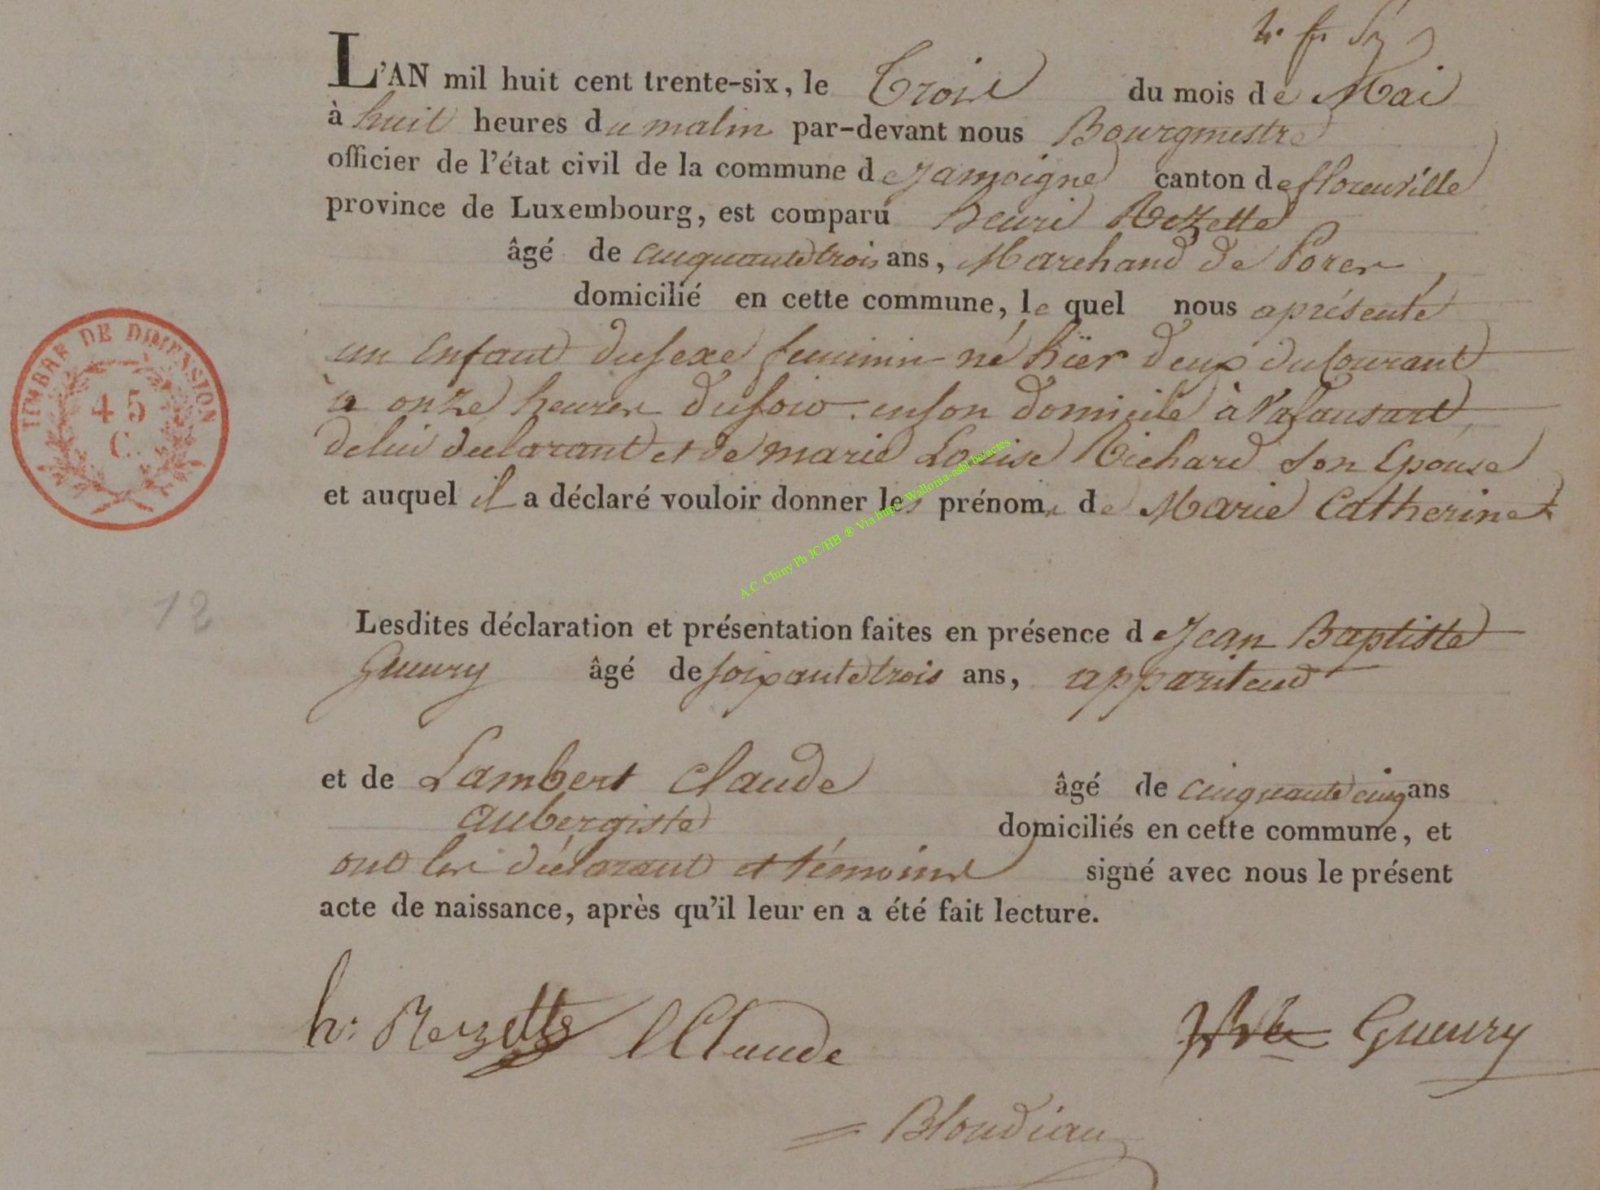 L'AN mil huit cent trente-six, le Trois du mois de Mai
à huit heures du matin par-devant nous Bourgmestre
officier de l'état civil de la commune de Jamoigne canton de florenville
province de Luxembourg, est comparu henri Rozette
âgé de cinquante trois ans, Marchand de Porcs,
domicilié en cette commune, le quel nous a présenté
un Enfant du sexe feminin né hier deux du Courant
à onze heures du soir en son domicile à Valansart
de lui declarant et de marie Louise Richard son Epouse
et auquel il a déclaré vouloir donner les prénoms de Marie Catherine
Lesdites déclaration et présentation faites en présence de Jean Baptiste
Gueury âgé de soixante trois ans, appariteur
et de Lambert Claude âgé de cinquante cinq ans
aubergiste domiciliés en cette commune, et
ont les déclarant et témoins signé avec nous le présent
acte de naissance, après qu'il leur en a été fait lecture.
h: Rezette LClaude Gueury
Blondiau
TIMBRE DE DIMENSION
45
C.
12
A.C. Chiny Ph JC/HB ® Via